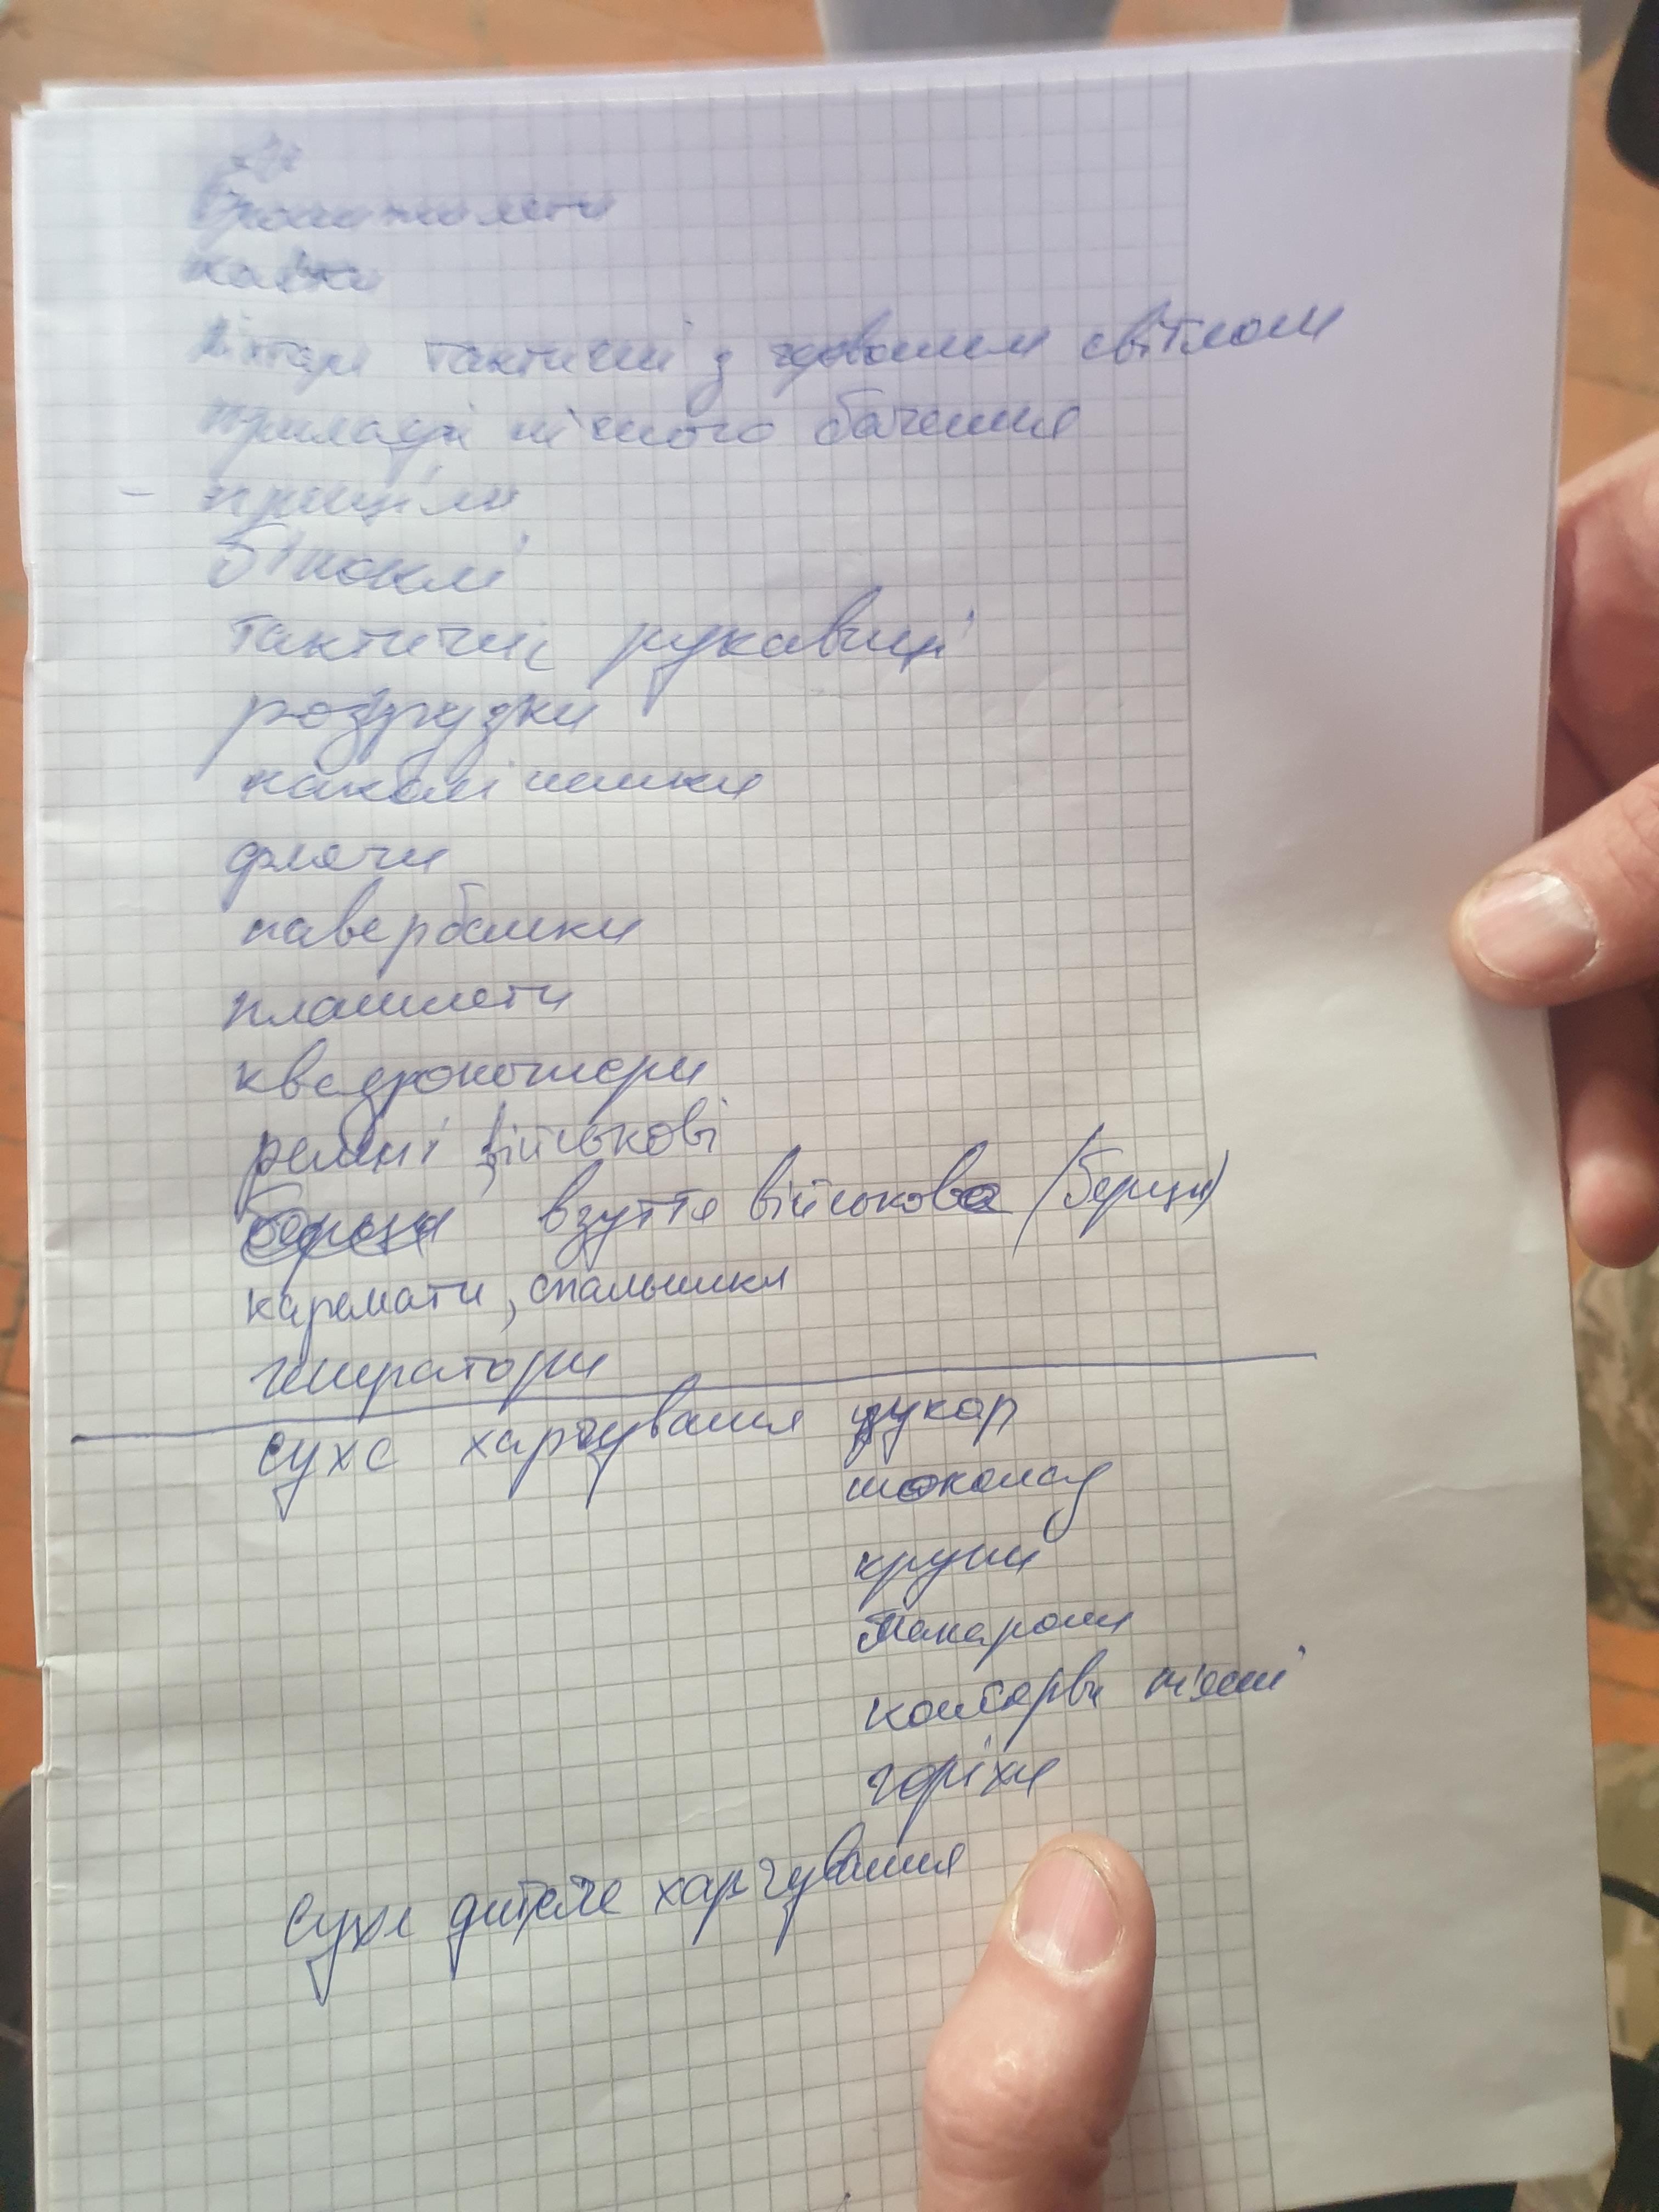 Бронежилети
каски
ліхтарі тактичні з червоним світлом
прилади нічного бачення
- приціли
біноклі
тактичні рукавиці
розгрузки
наколінники
фляги
павербанки
планшети
квадрокоптери
ремні військові
взуття військове (берци)
каремати, спальники
генератори
сухе харчування цукор
шоколад
крупи
макарони
консерви м'ясні
горіхи
сухе дитяче харчування